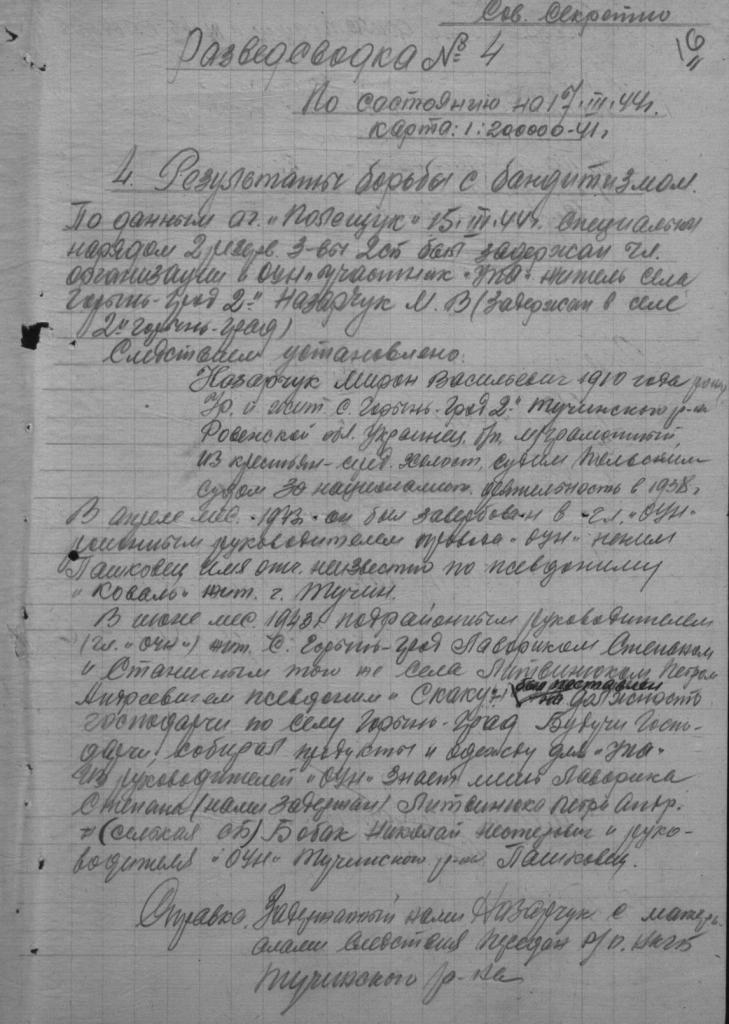 Сов. Секретно
16
Разведсводка № 4
По состоянию на 17.III.44г.
карта: 1:200000-41г
4. Результаты борьбы с бандитизмом.
По данным аг. "Полещук" 15.III.44г. специальным
нарядом 2 3-вы 2сп был задержан чл.
организации "ОУН" участник "УПА" житель села
Горынь-Град 2й Назарчук М. В (Задержан в селе
2й Горынь-Град)
Следствием установлено:
Назарчук Мирон Васильевич 1910 года
Ур. и жит. с. Горынь-Град 2й Тучинского р-на
Ровенской обл. Украинец, бп, м/грамотный,
из крестьян-серед. холост, судим Польским
судом за националист. деятельность в 1938г
В апреле мес. 1943 он был завербован в чл. "ОУН"
районным руководителем провода "ОУН" неким
Пашковец имя отч. неизвестно по псевдониму
"Коваль" жит. г. Тучин.
В июне мес. 1943г. подрайонным руководителем
(чл. "ОУН") жит. с. Горынь-Град Лавориком Степаном
и Станичным того же села Литвинюком Петром
Андреевичем псевдоним "Скакун" был поставлен
на должность
господарчи по селу Горынь-Град. Будучи Госпо-
дарчи, собирал продукты и одежду для "УПА"
Из руководителей "ОУН" знает лишь Лаворика
Степана (нами задержан) Литвинюка Петра Андр.
(сельская СБ) Бобак Николай Нестерович и руко-
водителя "ОУН" Тучинского р-на Пашковец.
Справка. Задержанный нами Назарчук с матери-
алами следствия передан р/о. НКГБ
Тучинского р-на